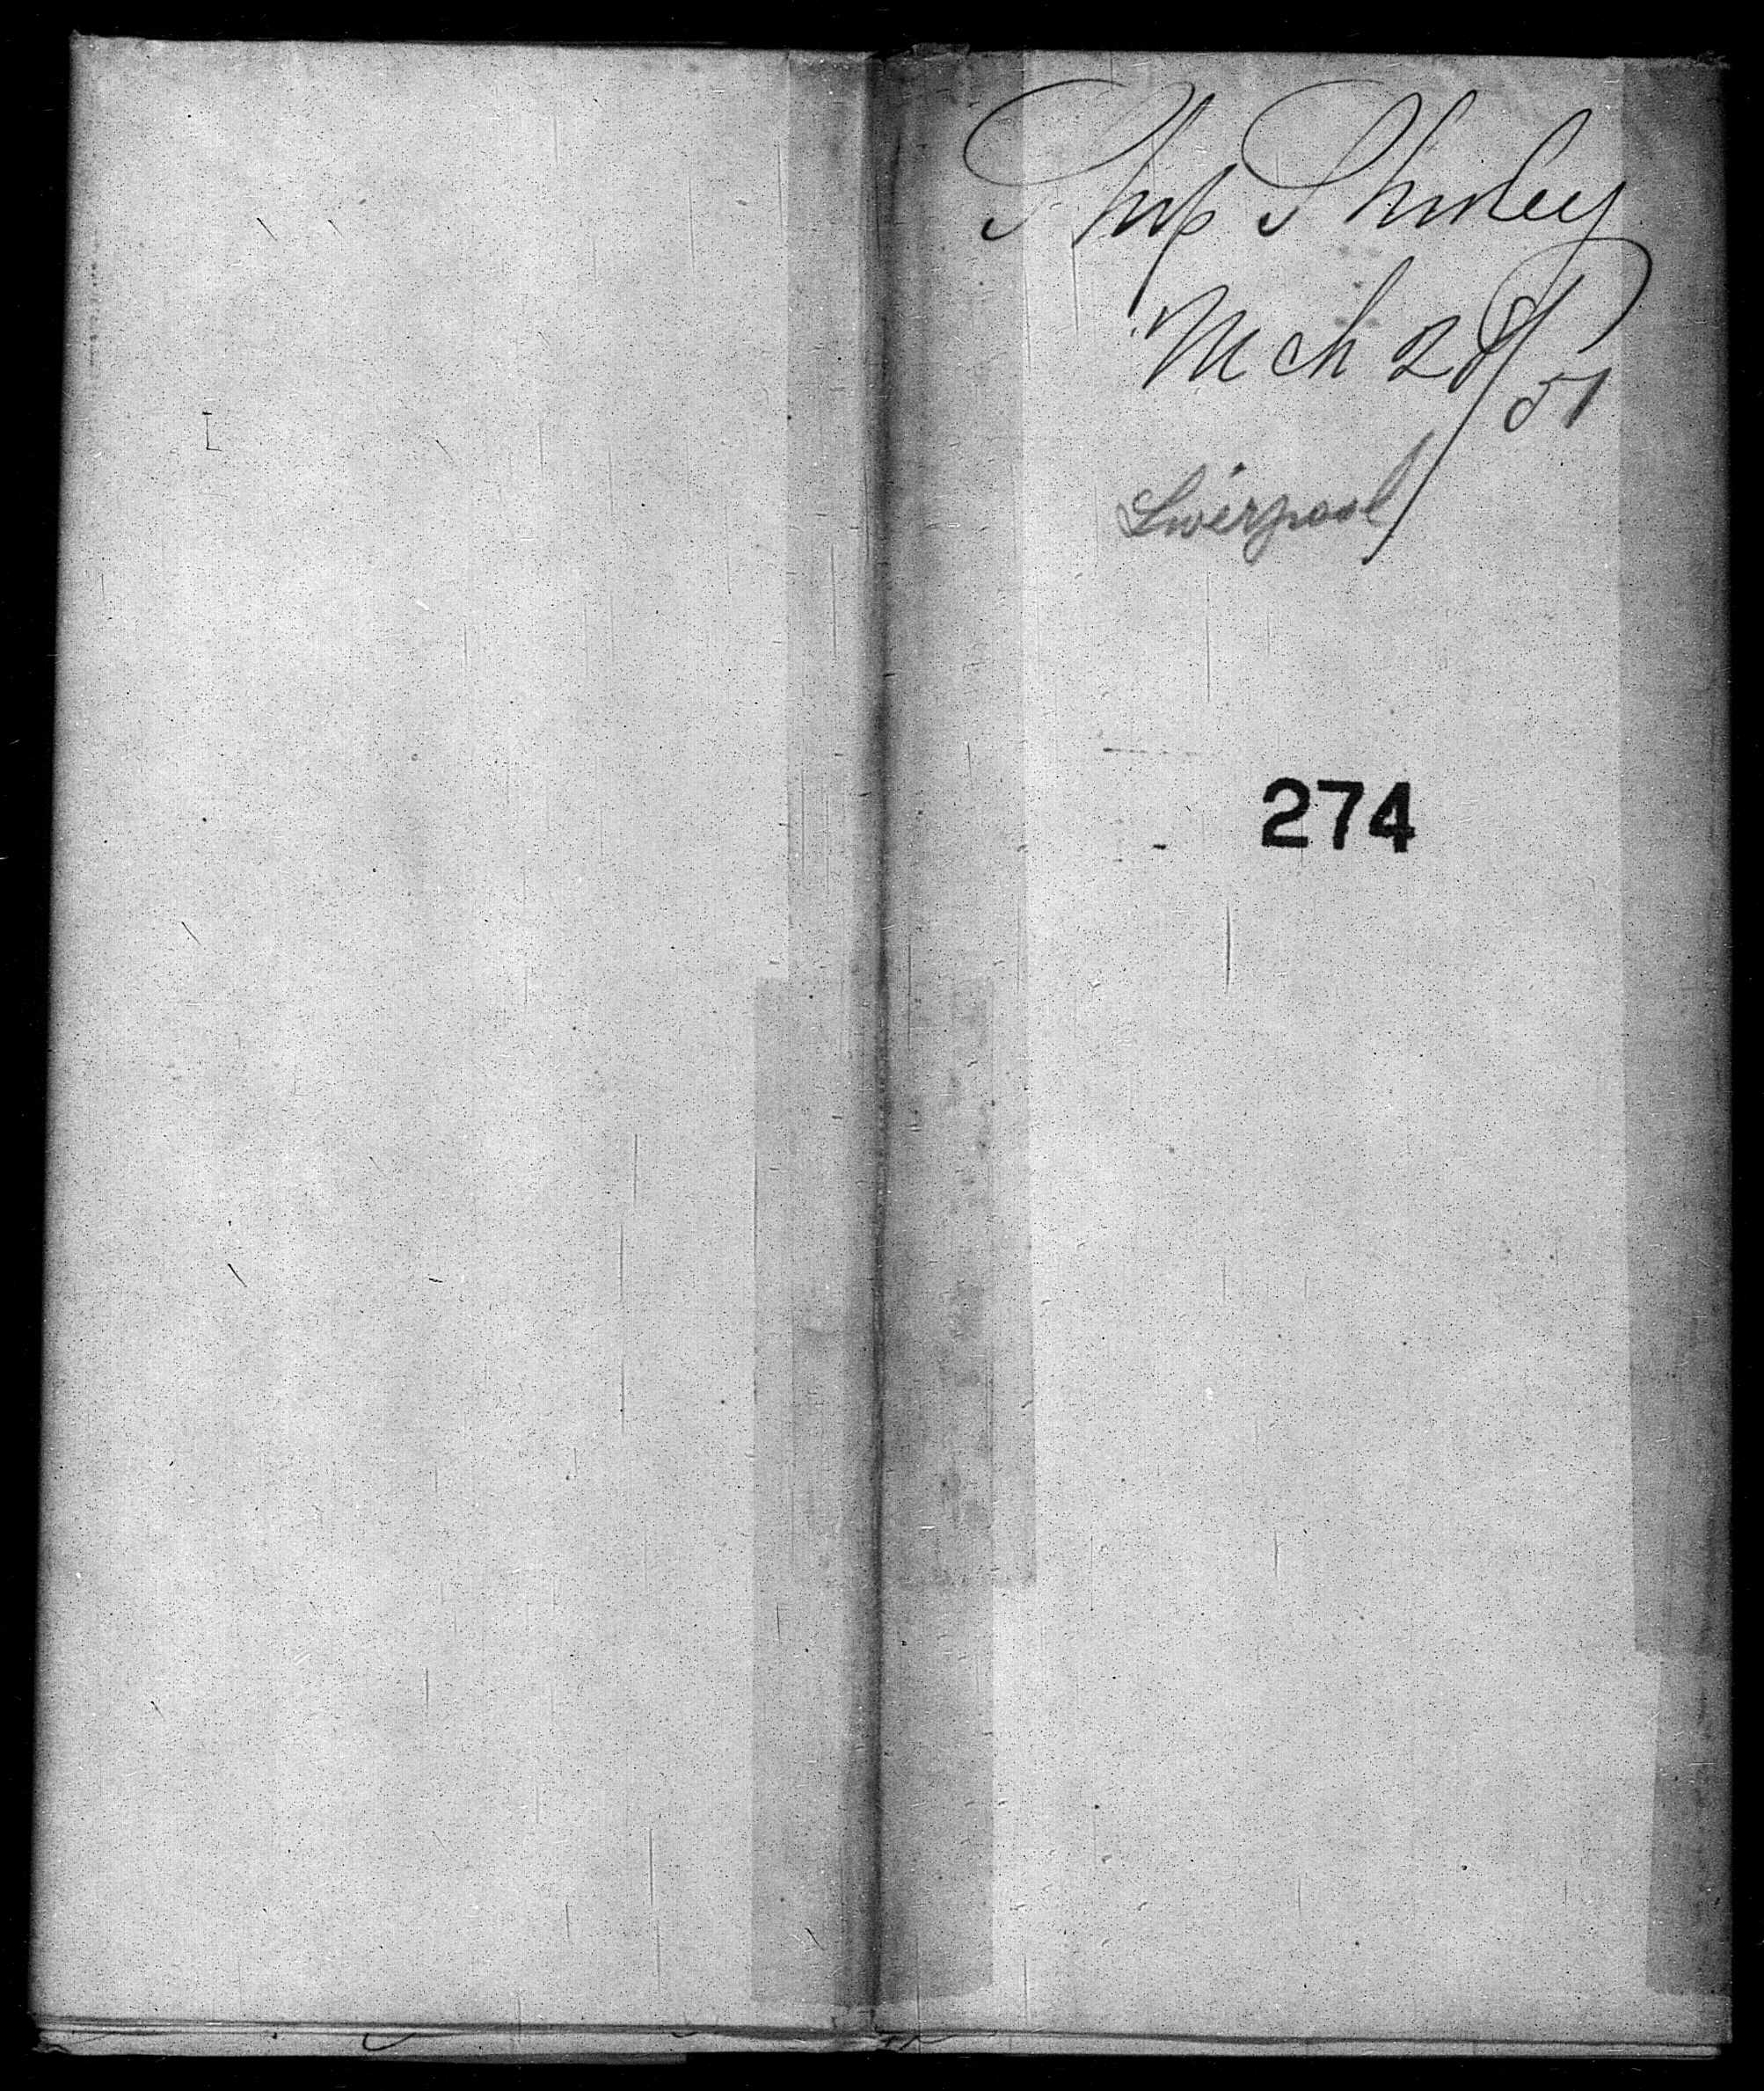 Ship Shirley
Mch 28/51
Liverpool
274